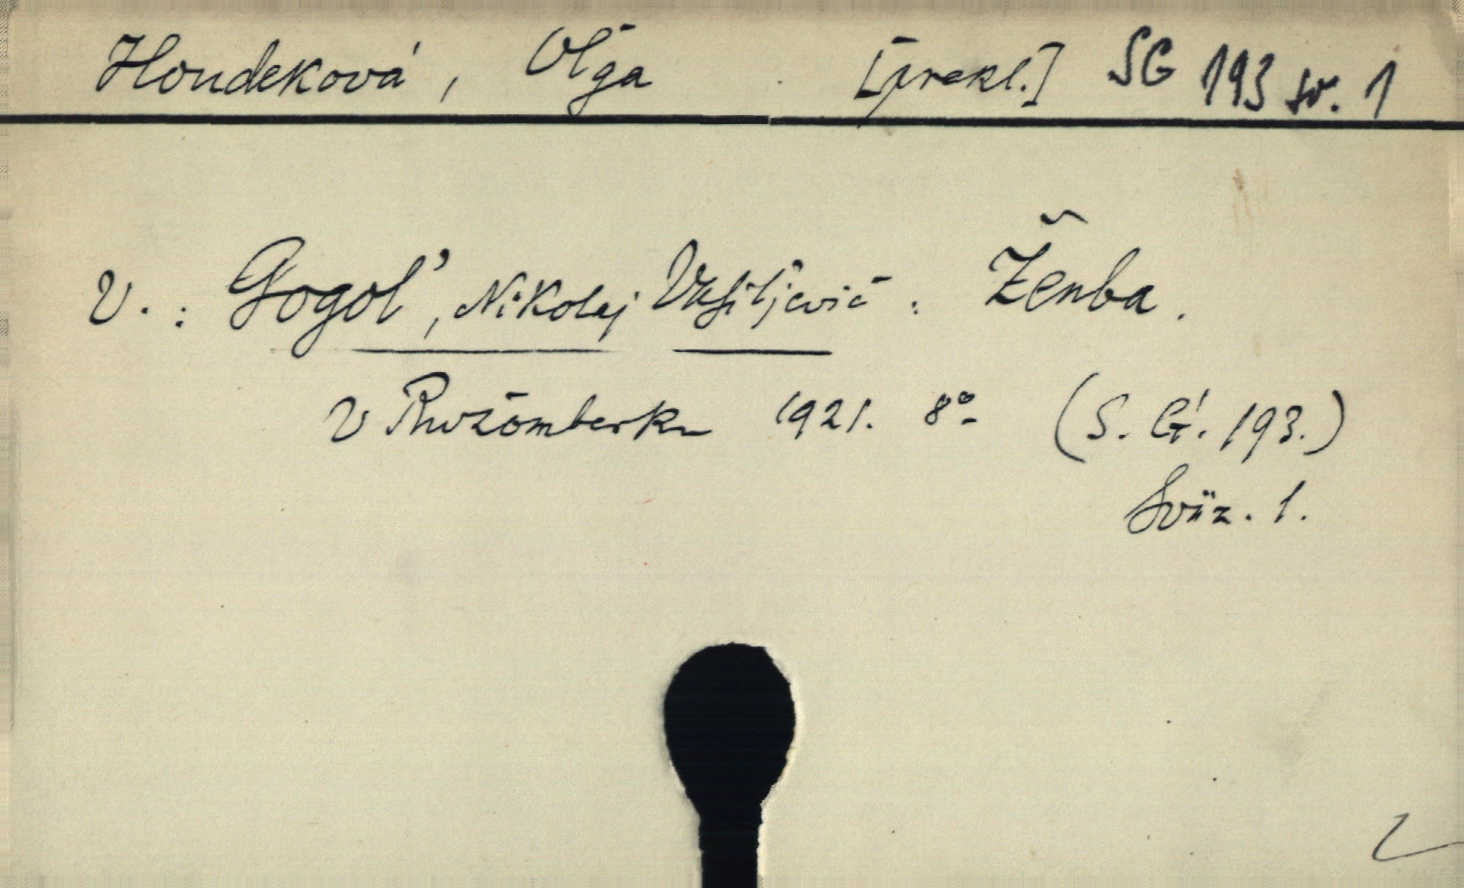 Houdeková, Oľga [prekl.] SG 193 sv. 1
V.: Gogol', Nikolaj Vasiljevič: Ženba.
V Ružomberku 1921. 8° (S. G. 193.)
Sväz. 1.